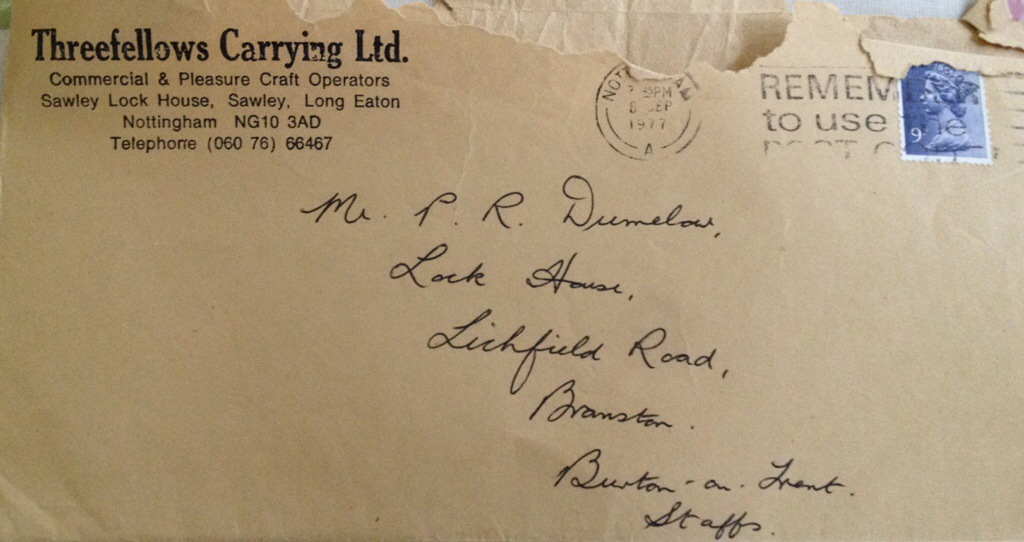 Threefellows Carrying Ltd.
Commercial & Pleasure Craft Operators
Sawley Lock House, Sawley, Long Eaton
Nottingham NG10 3AD
Telephone (060 76) 66467
PM
8 SEP
1977
A
to use the
9
Mr. P. R. Dumelow,
Lock House,
Lichfield Road,
Branston.
Burton-on-Trent.
Staffs.